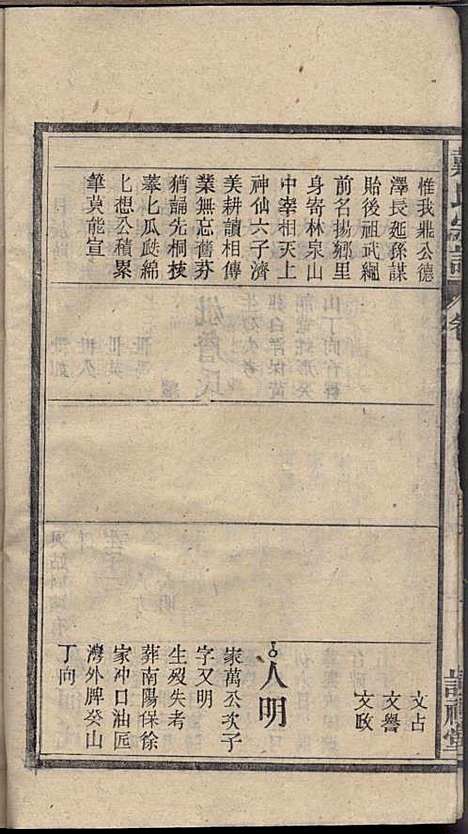 惟我鼎公德
澤長延孫謀
貽後祖武繩
前名揚鄉里
身寄林泉山
中宰相天上
神仙六子濟
美耕讀相傳
業無忘舊芬
猶誦先桐枝
蓁匕瓜瓞綿
匕想公積累
筆莫能宣
文占
文譽
文政
人明
家萬公次子
字又明
生歿失考
葬南陽保徐
家冲口油匠
灣外脾癸山
丁向